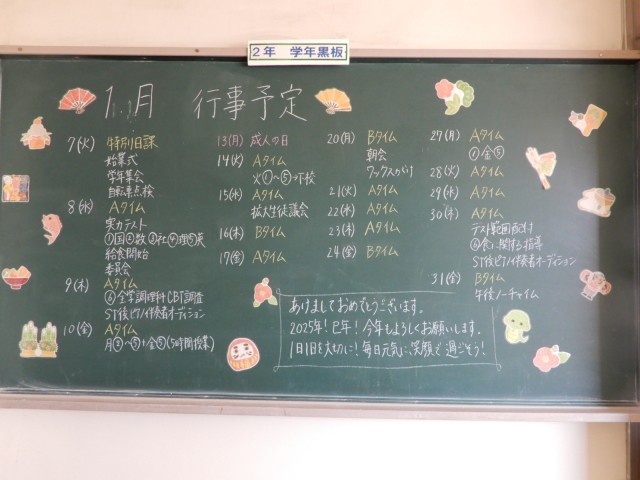 2年 学年黒板
1月 行事予定
7(火) 特別日課
始業式
学年集会
自転車点検
8(水) Aタイム
実力テスト
①国②数③社④理⑤英
給食開始
委員会
9(木) Aタイム
⑥全学調理科CBT調査
ST後ピアノ伴奏者オーディション
10(金) Aタイム
月②〜⑤金⑤(5時間授業)
13(月) 成人の日
14(火) Aタイム
火①〜⑤→下校
15(水) Aタイム
拡大生徒議会
16(木) Bタイム
17(金) Aタイム
20(月) Bタイム
朝会
ワックスがけ
21(火) Aタイム
22(水) Aタイム
23(木) Aタイム
24(金) Bタイム
27(月) Aタイム
①金⑤
28(火) Aタイム
29(水) Aタイム
30(木) Aタイム
テスト範囲
⑥食に関する指導
ST後ピアノ伴奏者オーディション
31(金) Bタイム
午後ノーチャイム
あけましておめでとうございます。
2025年!巳年!今年もよろしくお願いします。
1日1日を大切に!毎日元気に、笑顔で過ごそう!